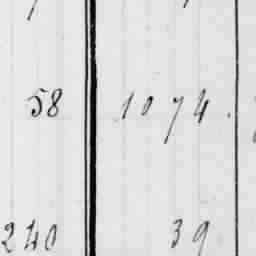 58 1074.
240 39